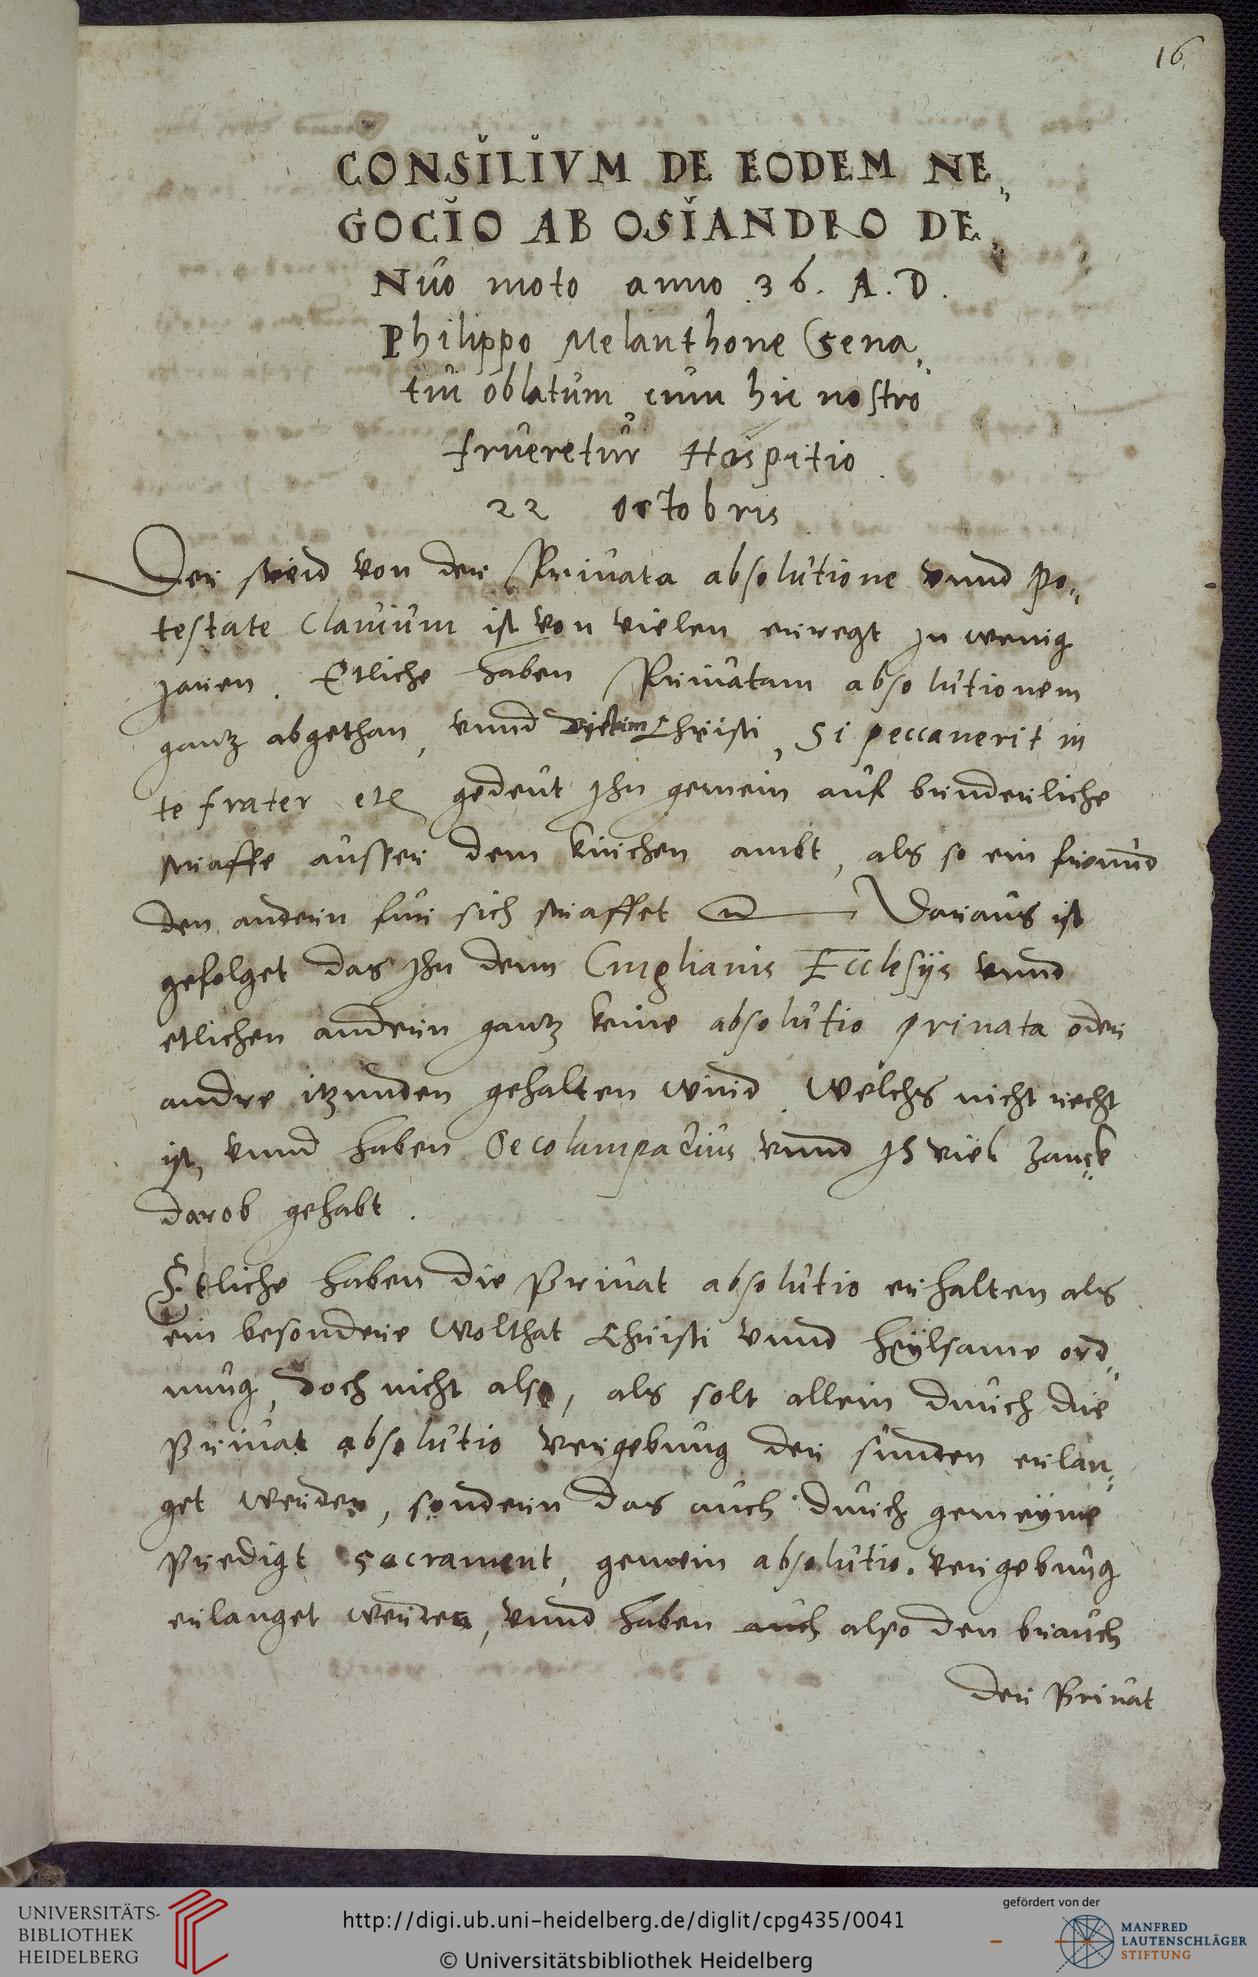 16.
CONSILIVM DE EODEM NE„
GOCIO AB OSIANDRO DE„
Nuo moto anno 36. A.D.
Philippo Melanthone Sena„
tui oblatum cum hic nostro
frueretur Hospitio
22 Octobris
Der streid von der Priuata absolutione vnnd po„
testate Clauium ist von vielen erregt jn wenig
jaren. Etliche haben Priuatam absolutionem
gantz abgethan, vnnd dictum Christi, Si peccauerit in
te frater etc gedeut jhn gemein auf bruderliche
straffe ausser dem kirchen ambt, als so ein freund
den andern fur sich straffet Daraus ist
gefolget das jhn denn Cinglianis Ecclesijs vnnd
etlichen andern gantz keine absolutio priuata oder
andre itzunden gehalten wird. Welchs nicht recht
ist, vnnd haben Oecolampadius vnnd ich viel zanck
darob gehabt.
Etliche haben die Priuat absolutio erhalten als
ein besondere Wolthat Christi vnnd heylsame ord„
nung, doch nicht also, als solt allein durch die
Priuat absolutio vergebung der sunden erlan„
get werden, sondern das auch durch gemeyne
Predigt Sacrament, gemein absolutio. vergebung
erlanget werden, vnnd haben auch also den brauch
der Priuat
UNIVERSITÄTS-
BIBLIOTHEK
HEIDELBERG
http://digi.ub.uni-heidelberg.de/diglit/cpg435/0041
© Universitätsbibliothek Heidelberg
gefördert von der
MANFRED
LAUTENSCHLÄGER
STIFTUNG